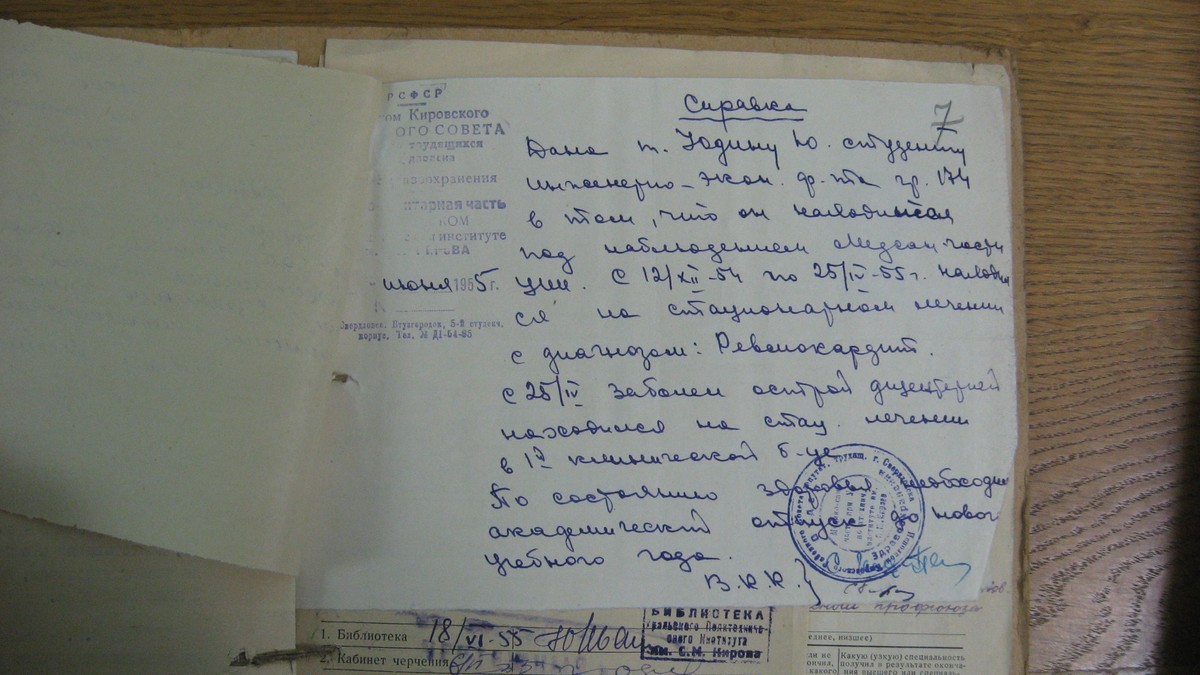 РСФСР
ом Кировского
ОГО СОВЕТА
трудящихся
равоохранения
итарная часть
КОМ
институте
РОВА
июня 1955 г.
Свердловск, Втузгородок, 5-й студенч.
корпус. Тел. № Д1-54-85
7
Справка
Дана т. Юдину Ю. студенту
инженерно-экон. ф-та гр. 174
в том, что он находился
под наблюдением Медсан.части
УПИ. С 12/XII-54 по 25/IV-55 г. находил
ся на стационарном лечении
с диагнозом: Ревмокардит.
С 25/IV заболел острой дизентерией
находился на стац. лечении
в 1й клинической б-це
По состоянию здоровья необходим
академический отпуск до нового
учебного года.
В.К.К.
1. Библиотека 18/VI-55
2. Кабинет черчения
БИБЛИОТЕКА
Уральского Политехниче-
ского Института
им. С.М. Кирова
профсоюза
еднее, низшее)
Какую (узкую) специальность
получил в результате оконча-
ния высшего или специаль-